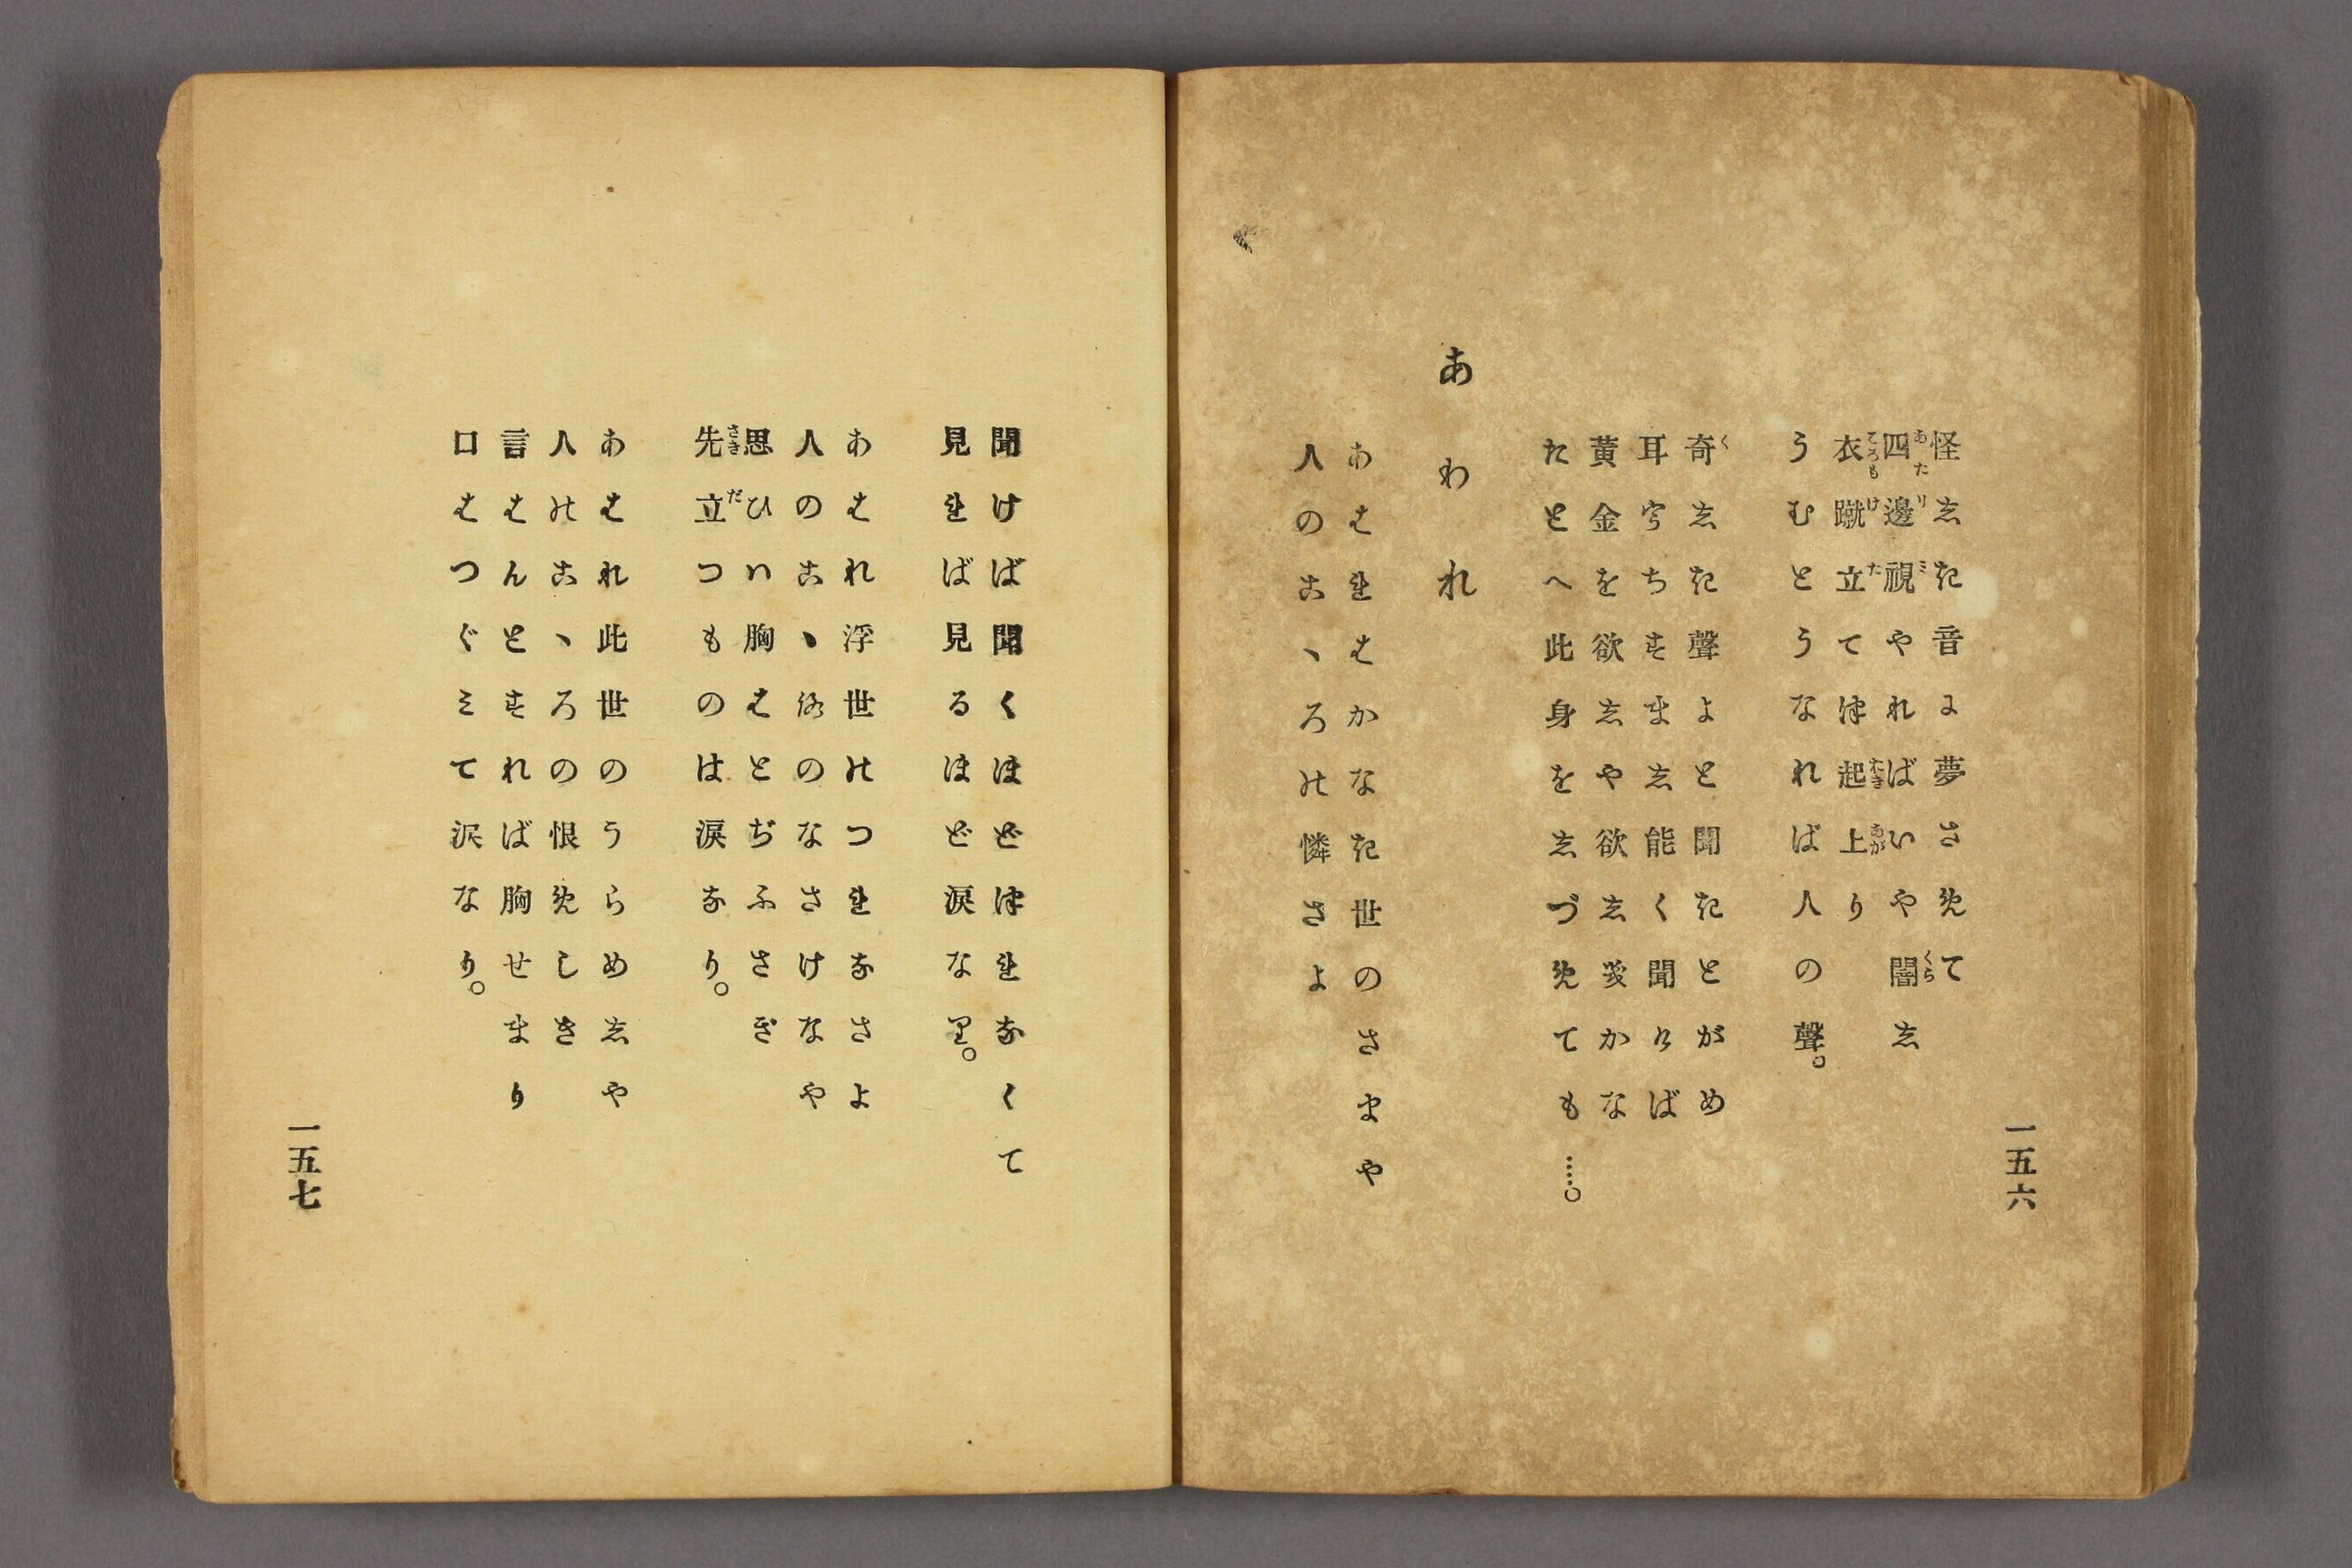 一五六
怪しき音に夢さめて
四邊視やればいや闇し
衣蹴立てはね起上り
うむとうなれば人の聲。
奇しき聲よと聞きとがめ
耳うちすまし能く聞けば
黄金を欲しや欲し笈かな
たとへ此身をしづめても……。
あわれ
あはれはかなき世のさまや
人のこゝろの憐さよ
聞けば聞くほどつれなくて
見れば見るほど涙なり。
あはれ浮世のつれなさよ
人のこゝろのなさけなや
思ひハ胸はとぢふさぎ
先立つものは涙なり。
あはれ此世のうらめしや
人のこゝろの恨めしき
言はんとすれば胸せまり
口はつぐミて涙なり。
一五七